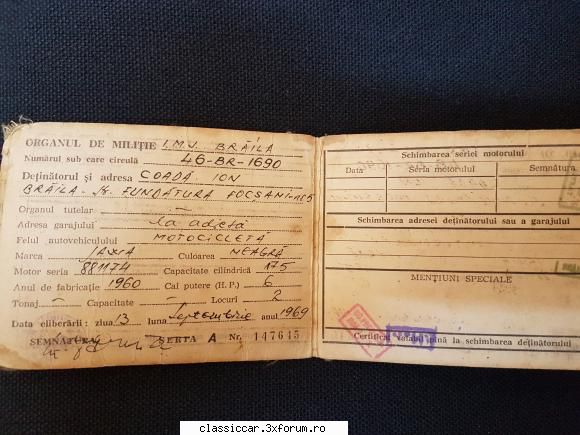 ORGANUL DE MILIȚIE I.M.J. BRĂILA
Numărul sub care circulă 46-BR-1690
Deținătorul și adresa COADĂ ION
BRĂILA - FUNDĂTURA FOCȘANI
Organul tutelar —
Adresa garajului la adresă
Felul autovehiculului MOTOCICLETĂ
Marca JAWA Culoarea NEAGRĂ
Motor seria 881174 Capacitate cilindrică 175
Anul de fabricație 1960 Cai putere (H. P.) 6
Tonaj — Capacitate — Locuri 2
Data eliberării: ziua 13 luna Septembrie anul 1969
SEMNĂTURA SERIA A Nr. 147645
Schimbarea seriei motorului
Data Seria motorului Semnătura
Schimbarea adresei deținătorului sau a garajului
MENȚIUNI SPECIALE
Certificat valabil pînă la schimbarea deținătorului
classiccar.3xforum.ro